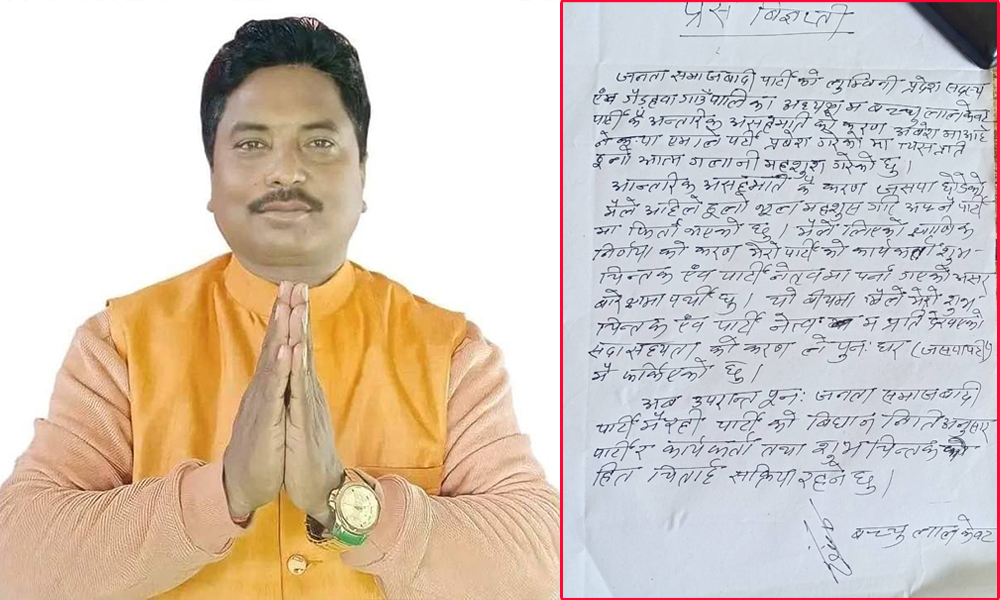 प्रेस बिज्ञप्ती
जनता समाजबादी पार्टी को लुम्बिनी प्रदेश सदस्य
एंव गैडहवा गाउँपालिका अध्यक्ष म बच्चु लाल केवट
पार्टी कै अन्तारिक असहमति को कारण आवेश मा आई
ने.क.पा एमाले पार्टी प्रवेश गरेको मा त्यस प्रति
ठूलो आत्म गलानी महशुश गरेको छु।
आन्तारिक असहमति कै कारण जसपा छोडेको
मैले अहिले ठूलो भूल महशुस गरि आफ्नै पार्टी
मा फिर्ता भएको छु। मैले लिएको क्षाणिक
निर्णय को करण मेरो पार्टी को कार्यकर्ता शुभ-
चिन्तक एंव पार्टी नेतृत्व मा पर्न गएको असर
बारे क्षमा प्रार्थी छु। यो बीचमा मैले मेरो शुभ
चिन्तक एंव पार्टी नेतृत्व म प्रति
को करण ने पुनः घर (जसपा पार्टी)
मै फर्किएको छु।
अब उपरान्त पुनः जनता समाजबादी
पार्टी मै रही पार्टी को बिधान निति अनुसार
पार्टी र कार्यकर्ता तथा शुभ चिन्तक को
हित चिताई सक्रिय रहने छु।
बच्चु लाल केवट